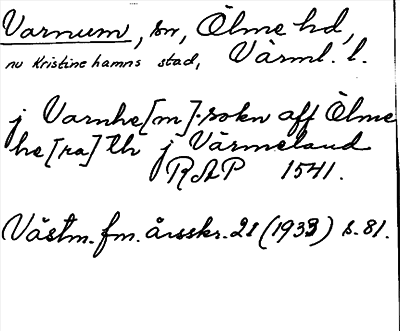 Varnum, sn, Ölme hd,
nu Kristinehamns stad, Värml. l.
j Varnhe[m]-sokn aff Ölme
he[ra]th j Värmeland
RAP 1541.
Västm. fm. årsskr. 21 (1933) s. 81.